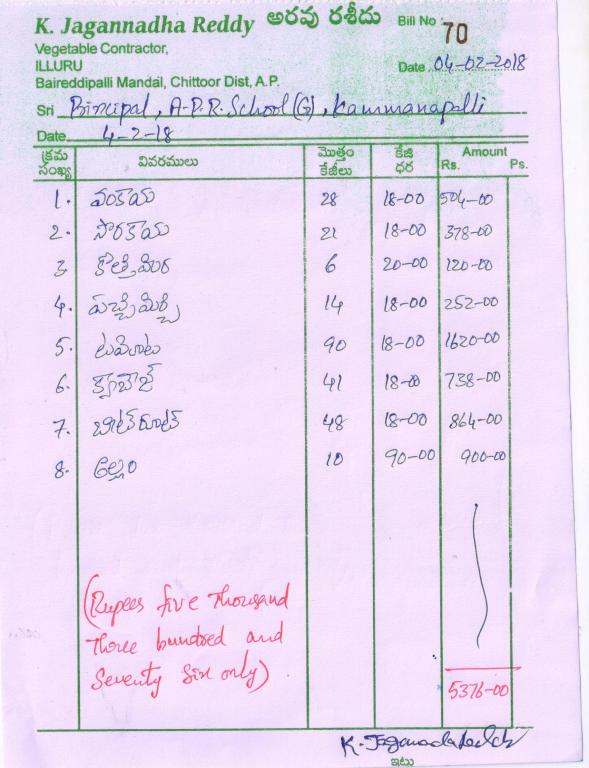 K. Jagannadha Reddy అరవు రశీదు Bill No 70
Vegetable Contractor,
ILLURU
Baireddipalli Mandal, Chittoor Dist, A.P.
Date 04-02-2018
Sri Principal, A.P.R. School (G), Kammanapalli
Date 4-2-18
క్రమ సంఖ్య వివరములు మొత్తం కేజీలు కేజి ధర Amount Rs. Ps.
1. వంకాయ 28 18-00 504-00
2. సొరకాయ 21 18-00 378-00
3. కొత్తిమీర 6 20-00 120-00
4. పచ్చిమిర్చి 14 18-00 252-00
5. టమోటా 90 18-00 1620-00
6. క్యాబేజ్ 41 18-00 738-00
7. బీట్‌రూట్ 48 18-00 864-00
8. అల్లం 10 90-00 900-00
(Rupees five Thousand
Three hundred and
Seventy Six only)
5376-00
K. Jagannadha Reddy
ఇటు